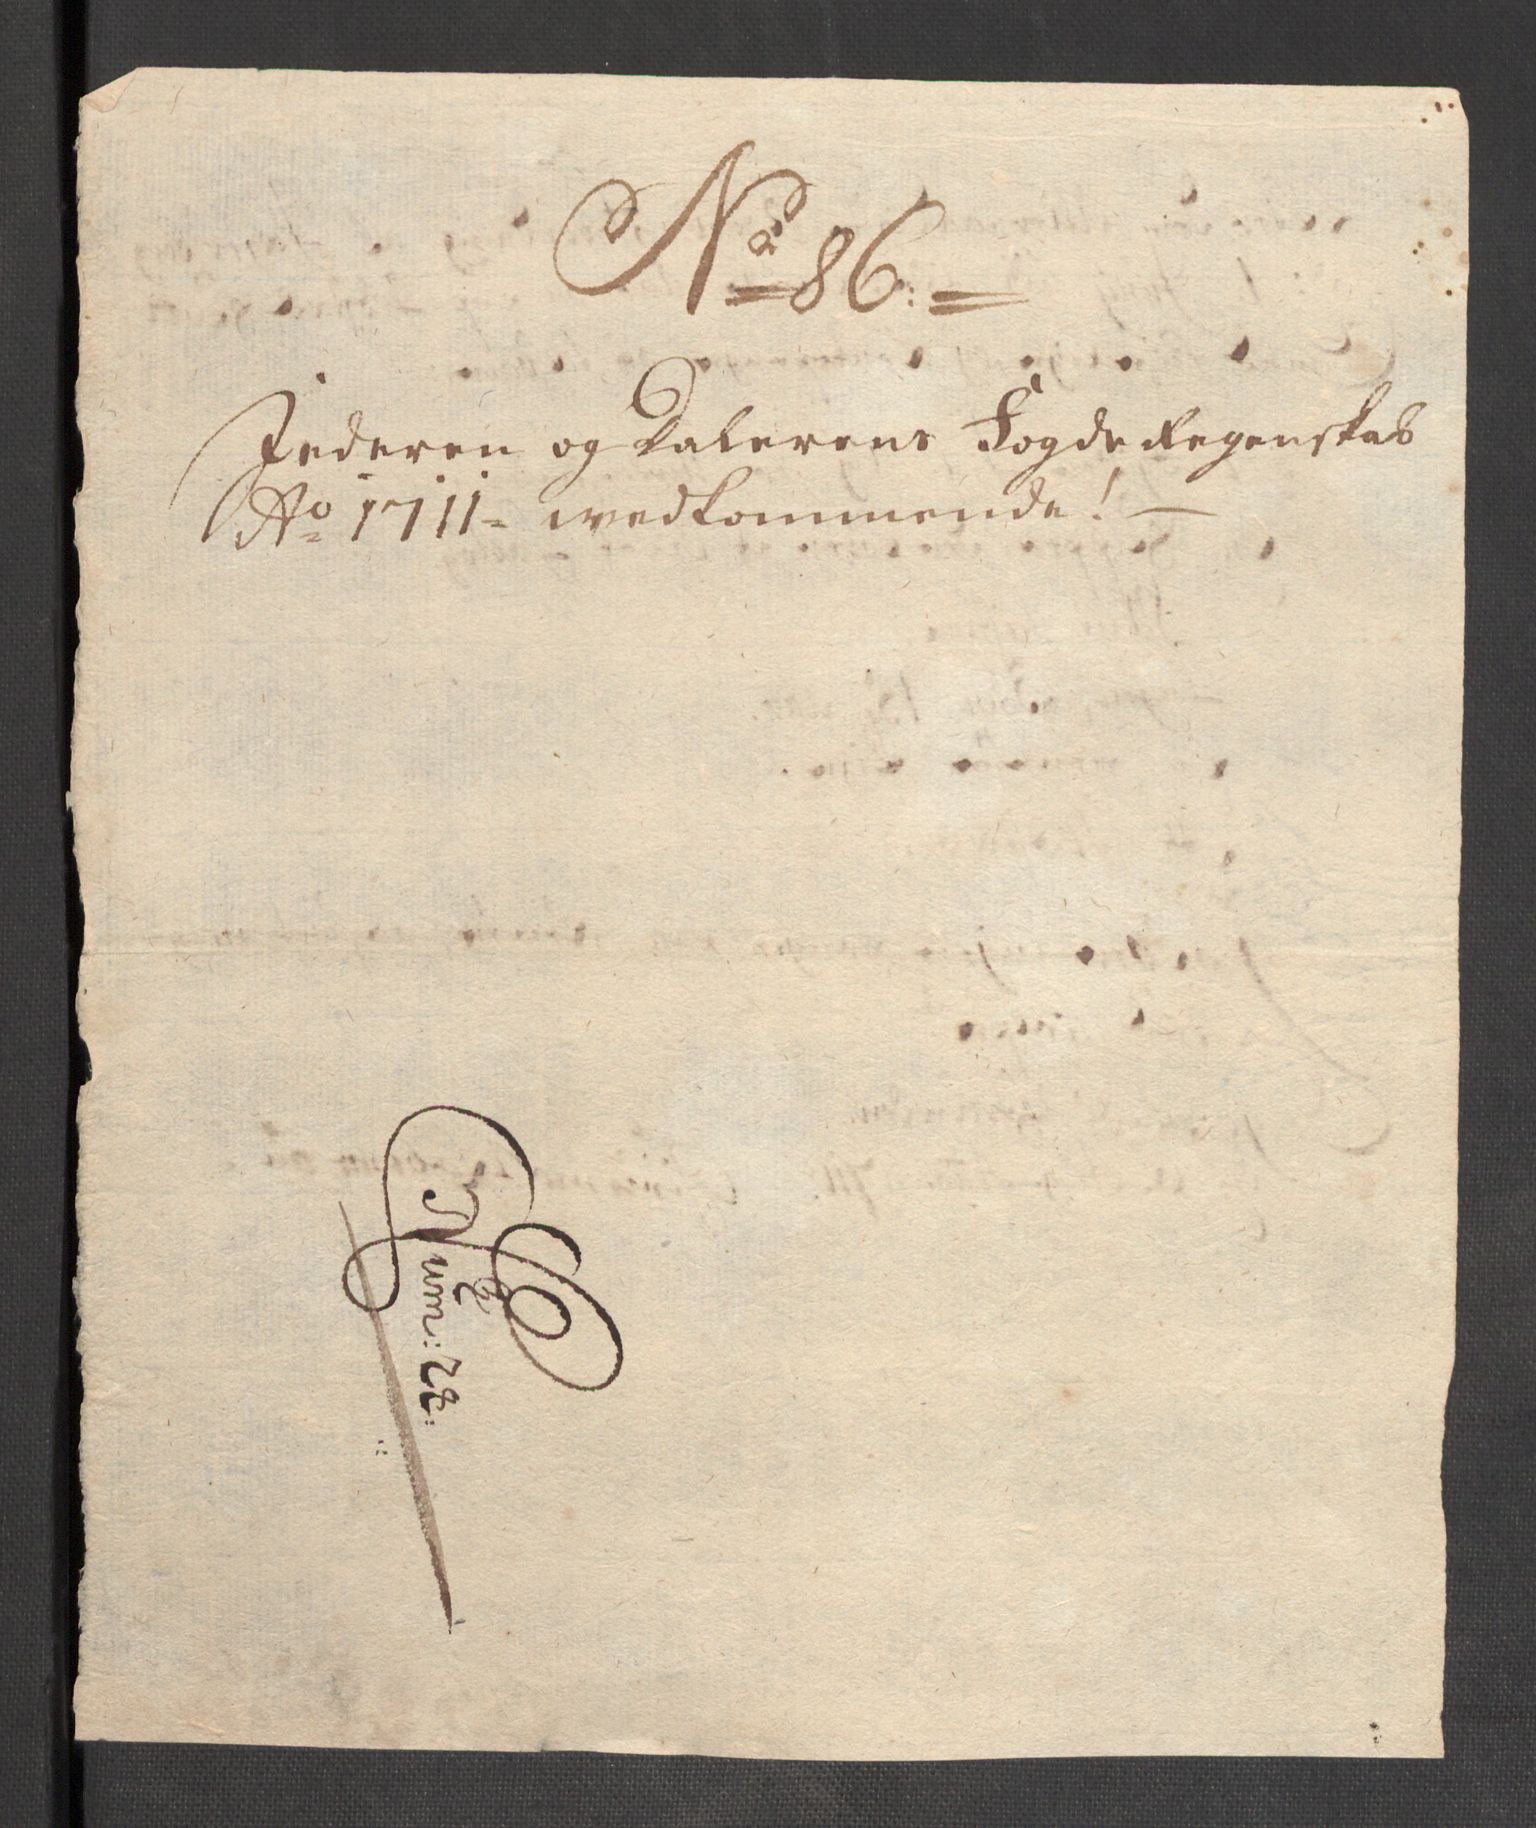 No 86:
Jederen og Dalerens Fogde Regenskab
Ao 1711 wedkommende!
Num: 28: